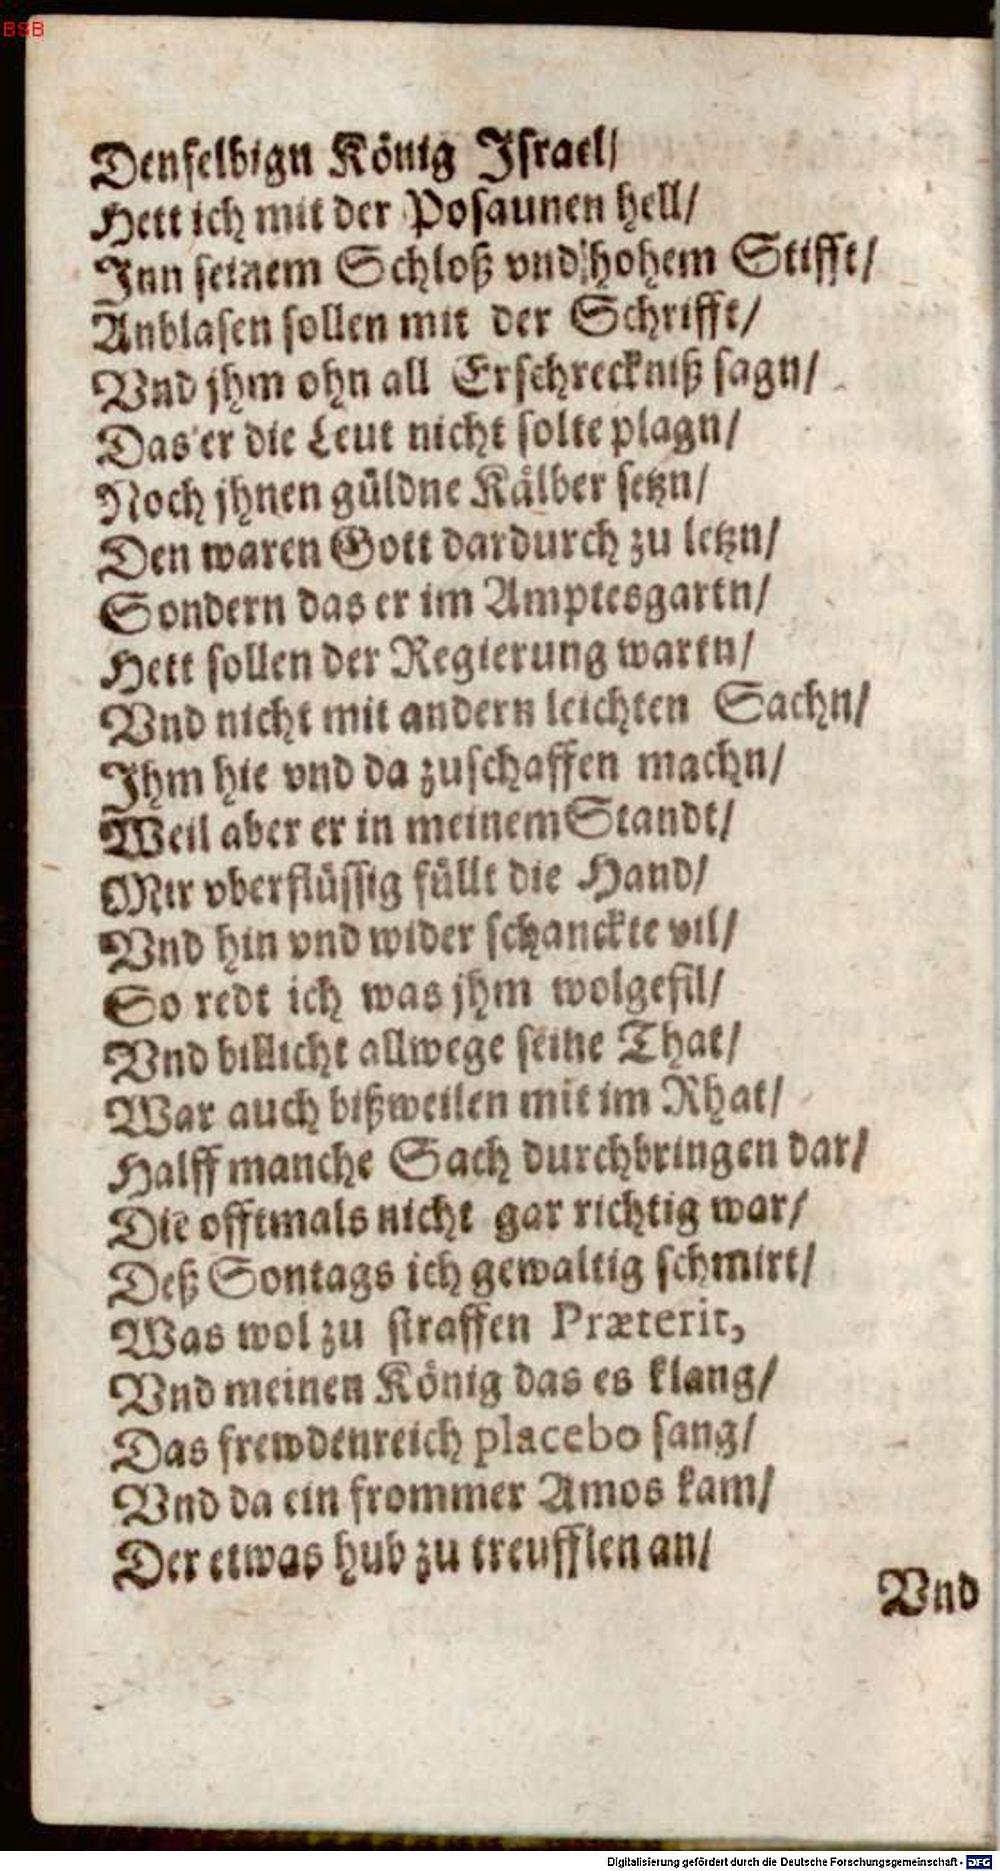 BSB
Denselbign König Israel/
Hett ich mit der Posaunen hell/
Inn seinem Schloß vnd hohem Stifft/
Anblasen sollen mit der Schrifft/
Vnd jhm ohn all Erschreckniß sagn/
Das er die Leut nicht solte plagn/
Noch jhnen güldne Kälber setzn/
Den waren Gott dardurch zu letzn/
Sondern das er im Amptesgartn/
Hett sollen der Regierung wartn/
Vnd nicht mit andern leichten Sachn/
Ihm hie vnd da zuschaffen machn/
Weil aber er in meinem Standt/
Mir vberflüssig füllt die Hand/
Vnd hin vnd wider schanckte vil/
So redt ich was jhm wolgefil/
Vnd billicht allwege seine That/
War auch bißweilen mit im Rhat/
Halff manche Sach durchbringen dar/
Die offtmals nicht gar richtig war/
Deß Sontags ich gewaltig schmirt/
Was wol zu straffen Præterit,
Vnd meinen König das es klang/
Das frewdenreich placebo sang/
Vnd da ein frommer Amos kam/
Der etwas hub zu treufflen an/
Vnd
Digitalisierung gefördert durch die Deutsche Forschungsgemeinschaft - DFG